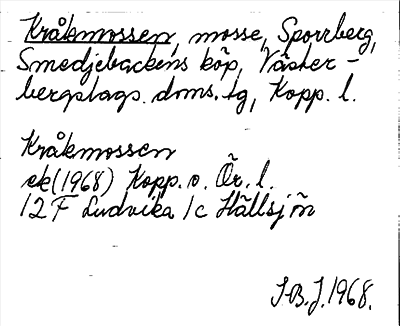 Kråkmossen, mosse, Sporrberg,
Smedjebackens köp, Väster-
bergslags. doms. tg, Kopp. l.
Kråkmossen
ek (1968) Kopp. o. Ör. l.
12 F Ludvika 1c Hällsjön
J.B.J. 1968.